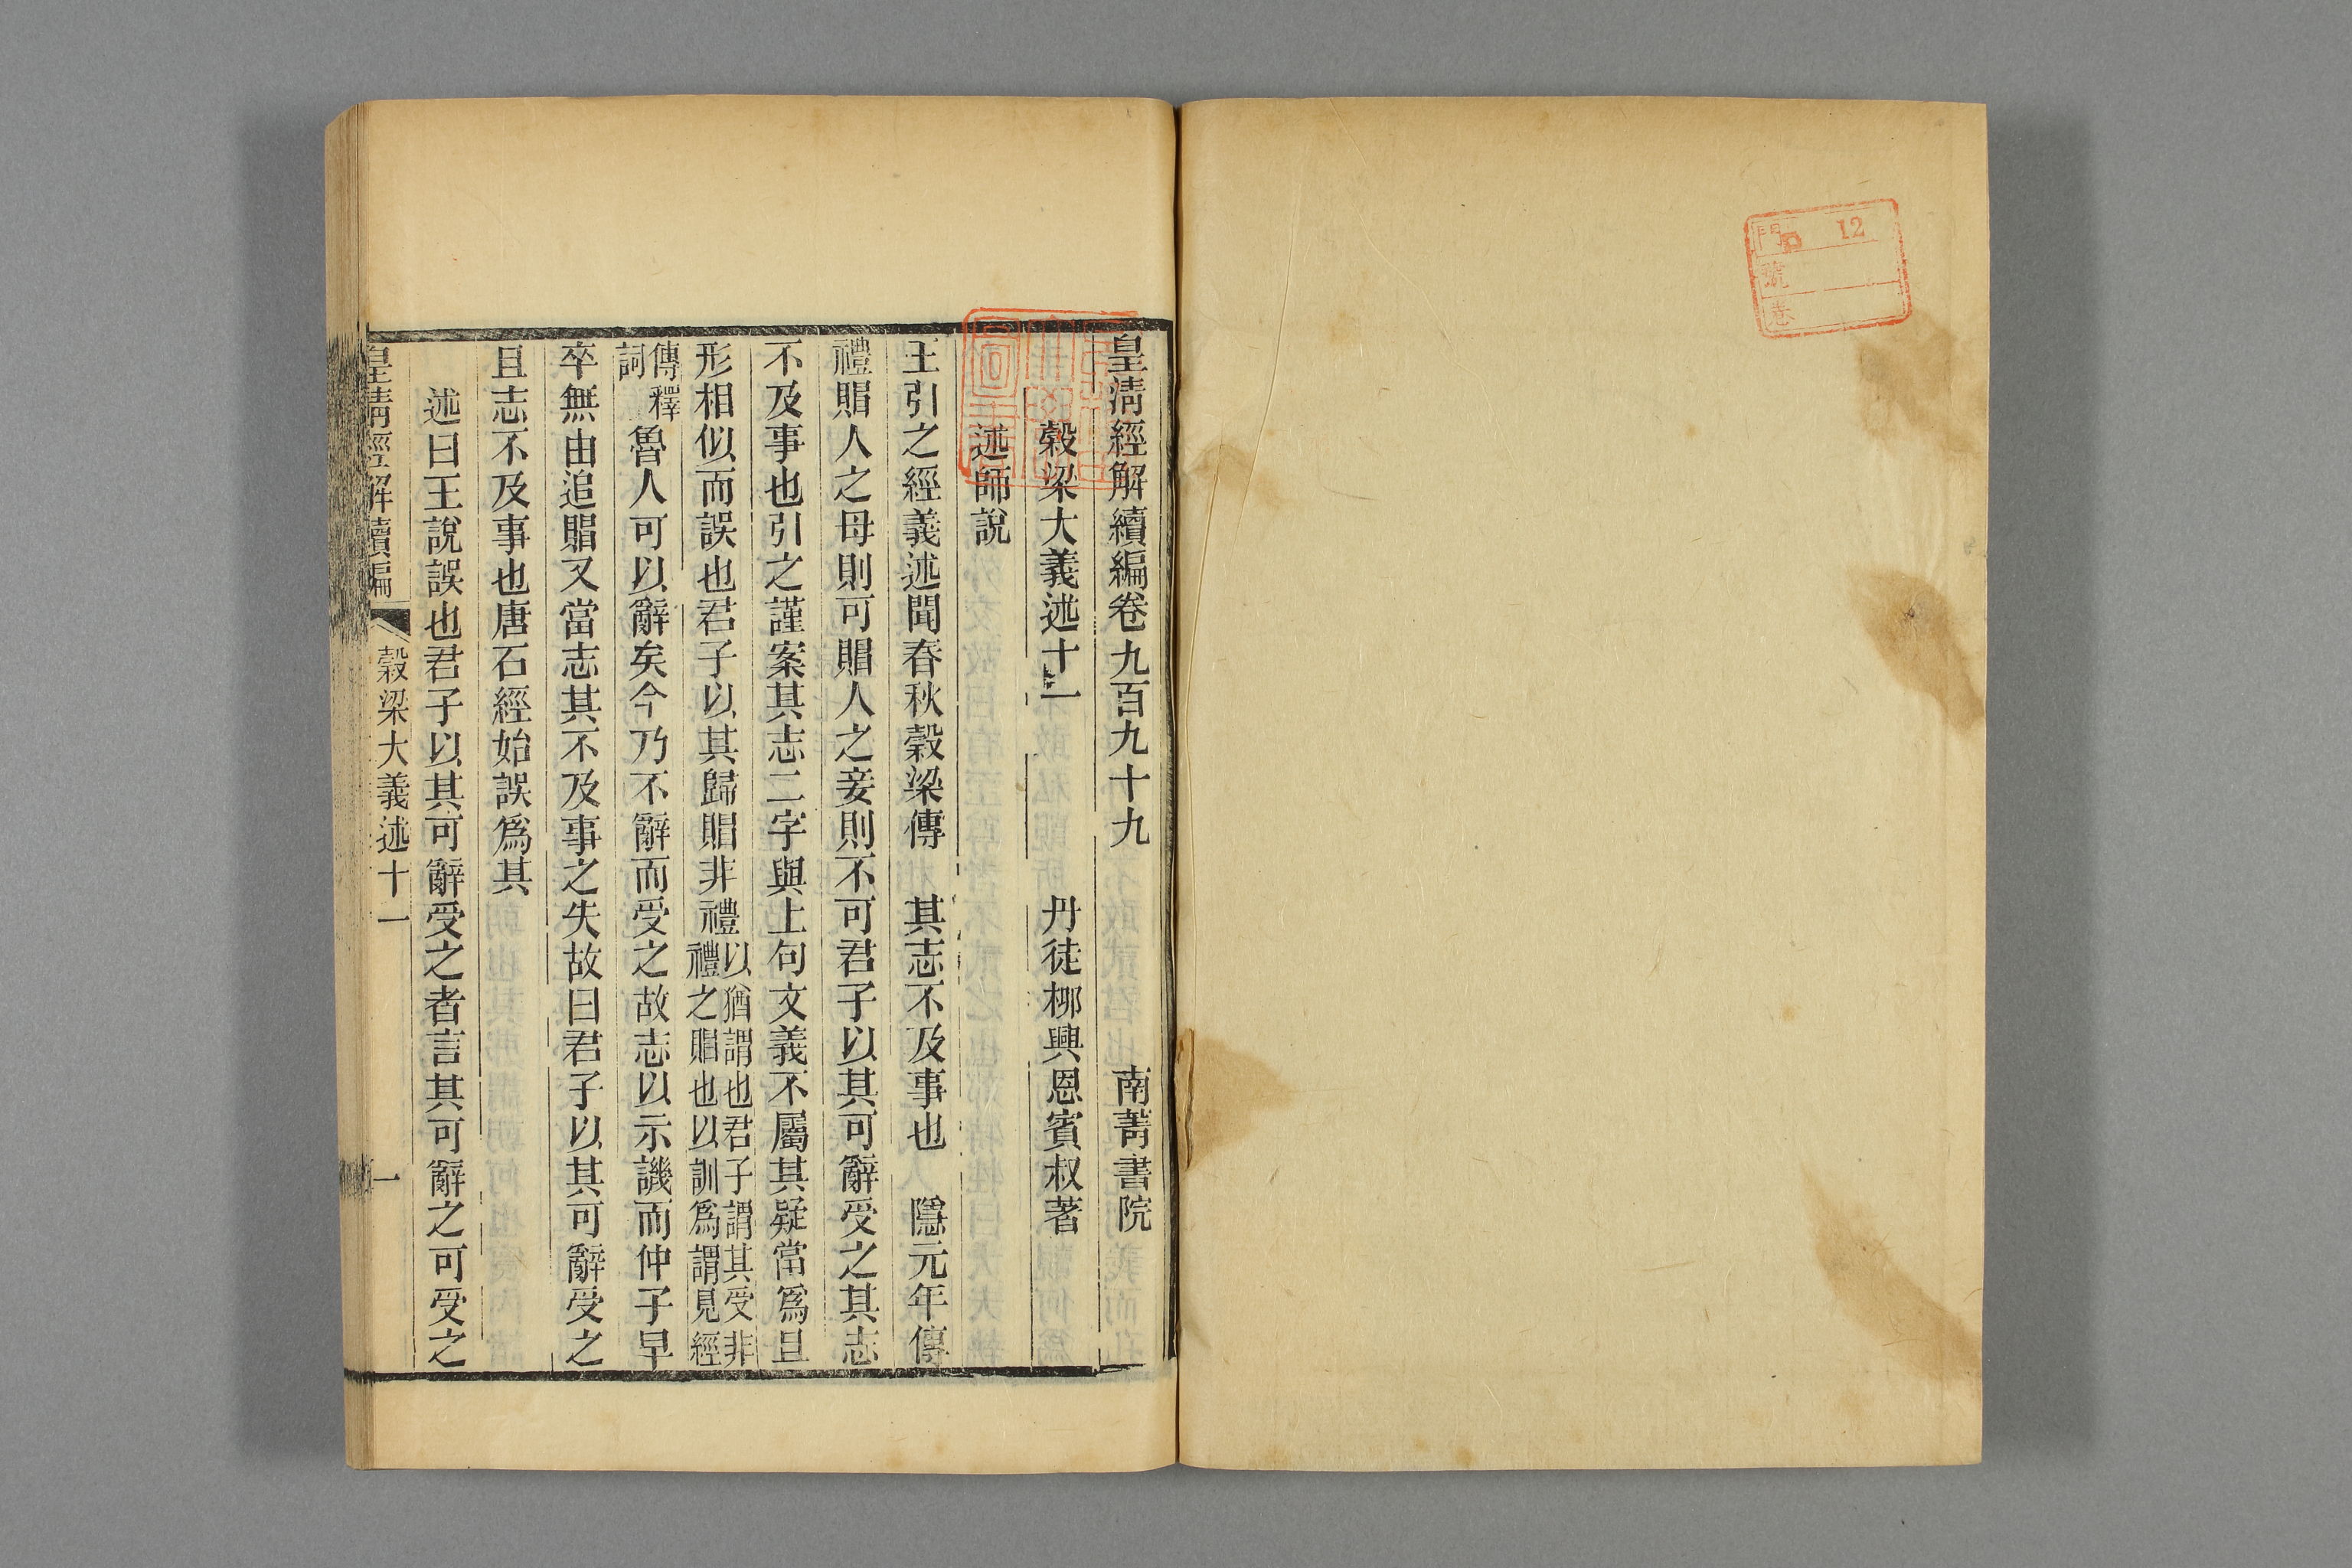 12
門
號
卷
皇淸經解續編卷九百九十九　南菁書院
榖梁大義述十一　丹徒栁興恩賓叔著
述師說
王引之經義述聞春秋榖梁傳　其志不及事也　隱元年傳
禮賵人之母則可賵人之妾則不可君子以其可辭受之其志
不及事也引之謹案其志二字與上句文義不屬其疑當爲且
形相似而誤也君子以其歸賵非禮以猶謂也君子謂其受非禮之賵也以訓爲謂見經
傳釋詞魯人可以辭矣今乃不辭而受之故志以示譏而仲子早
卒無由追賵又當志其不及事之失故曰君子以其可辭受之
且志不及事也唐石經始誤爲其
述曰王說誤也君子以其可辭受之者言其可辭之可受之
皇淸經解續編　榖梁大義述十一　一